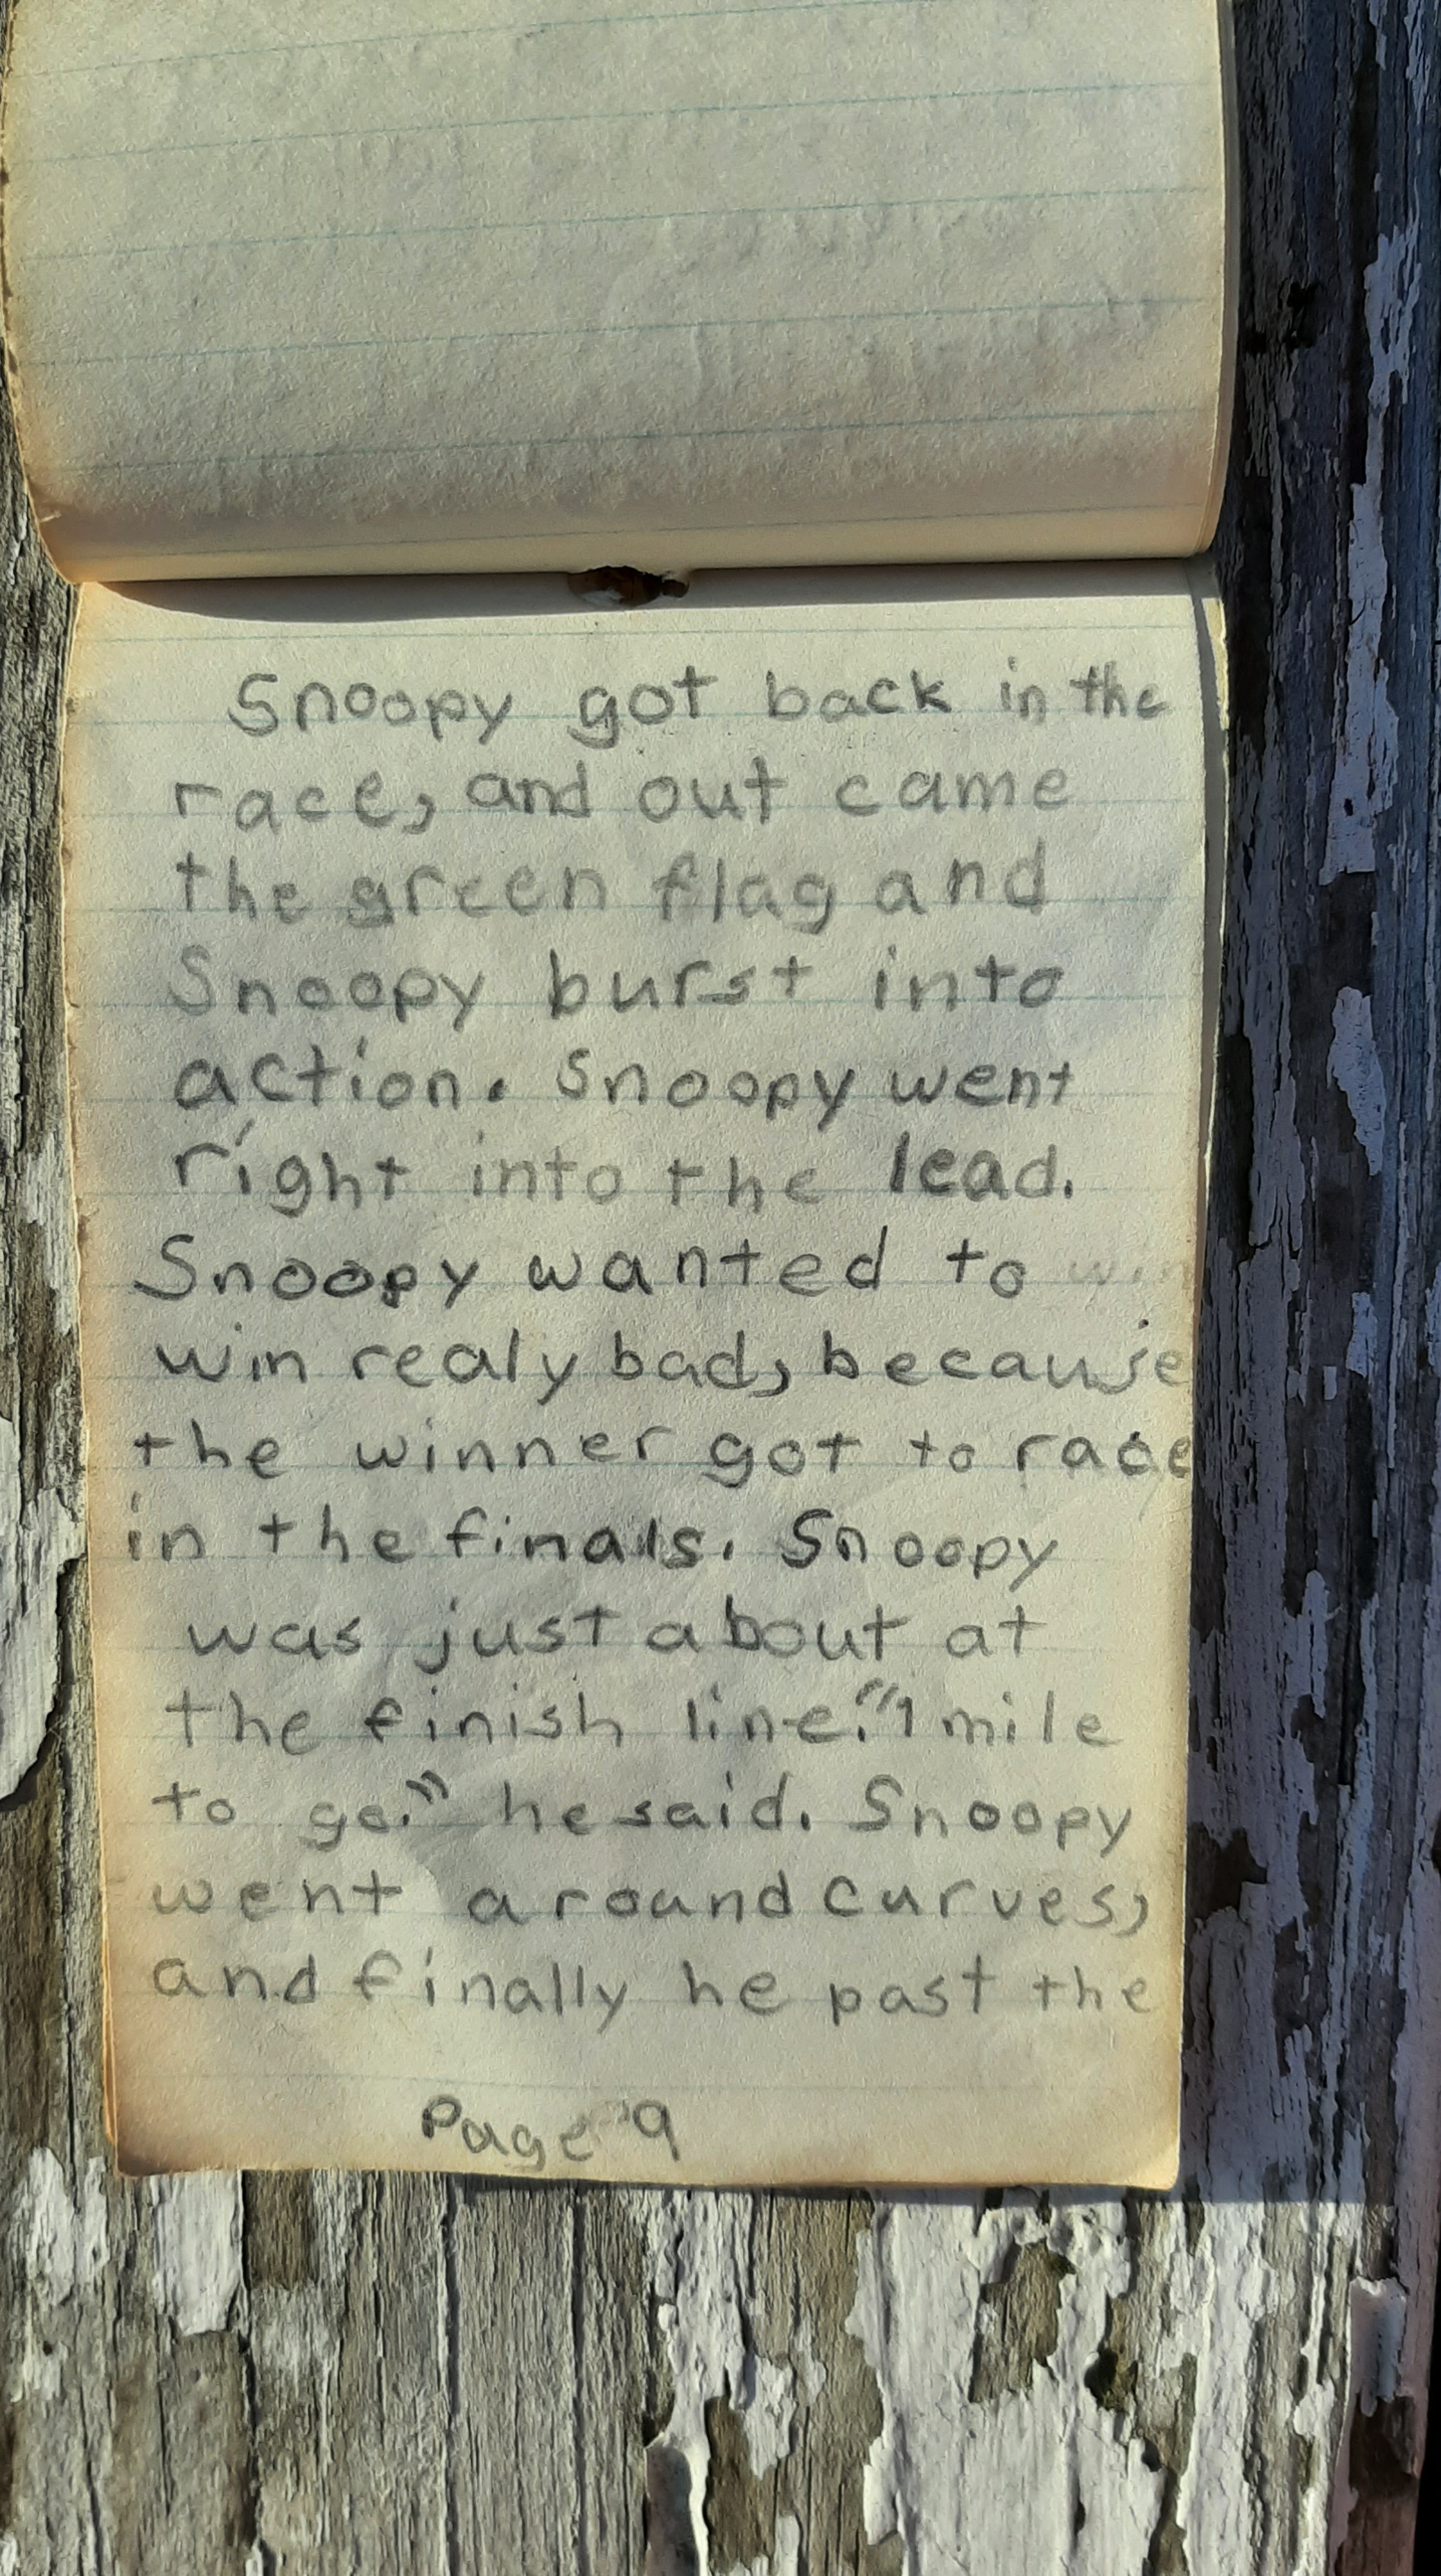 Snoopy got back in the
race, and out came
the green flag and
Snoopy burst into
action. Snoopy went
right into the lead.
Snoopy wanted to win
win realy bad, because
the winner got to race
in the finals. Snoopy
was just about at
the finish line. "1 mile
to go." he said. Snoopy
went around curves,
and finally he past the
Page 9